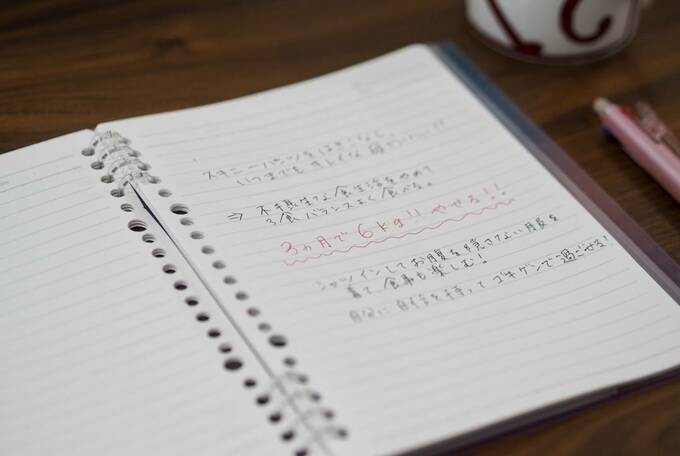 スキニーパンツをはきこなし
いつまでもキレイな
⇒ 不規則な食生活をやめて
3食バランスよく食べる。
3ヵ月で6kg!! やせる!!
シャツインしてお腹を隠さない服を
着て 食事も楽しむ!
自分に自信を持って ゴキゲンで過ごせる!